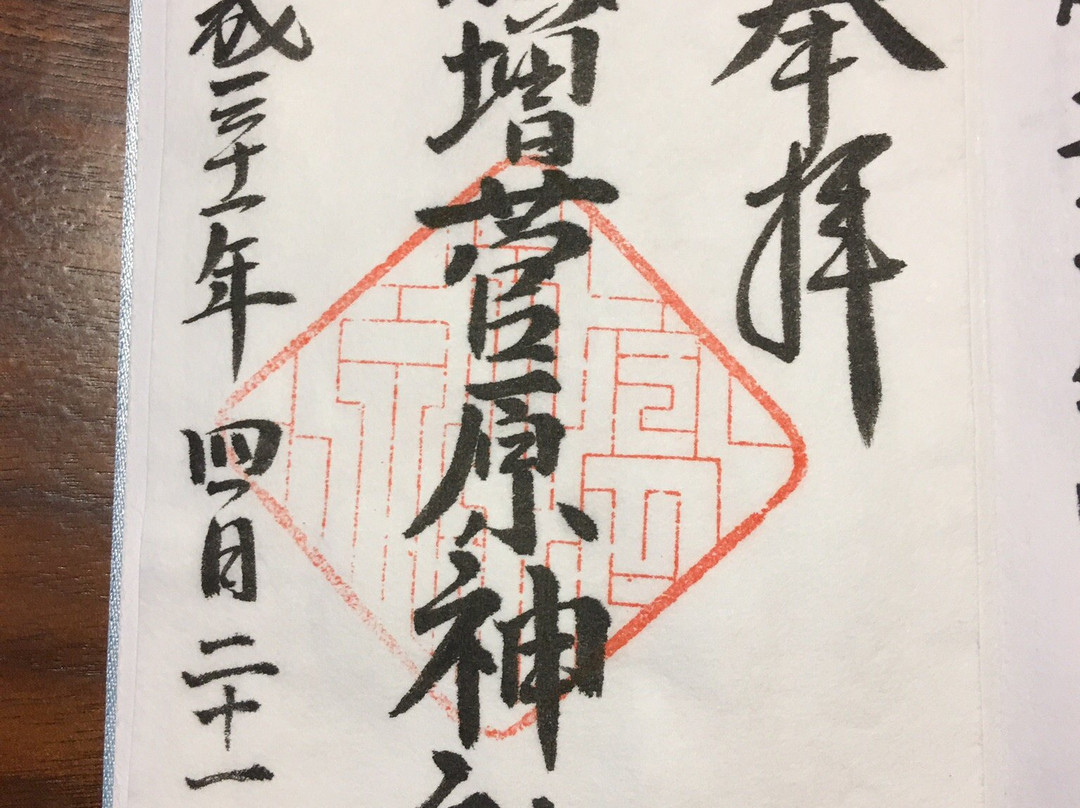 奉拝
増菅原神
成三十一年四月二十一